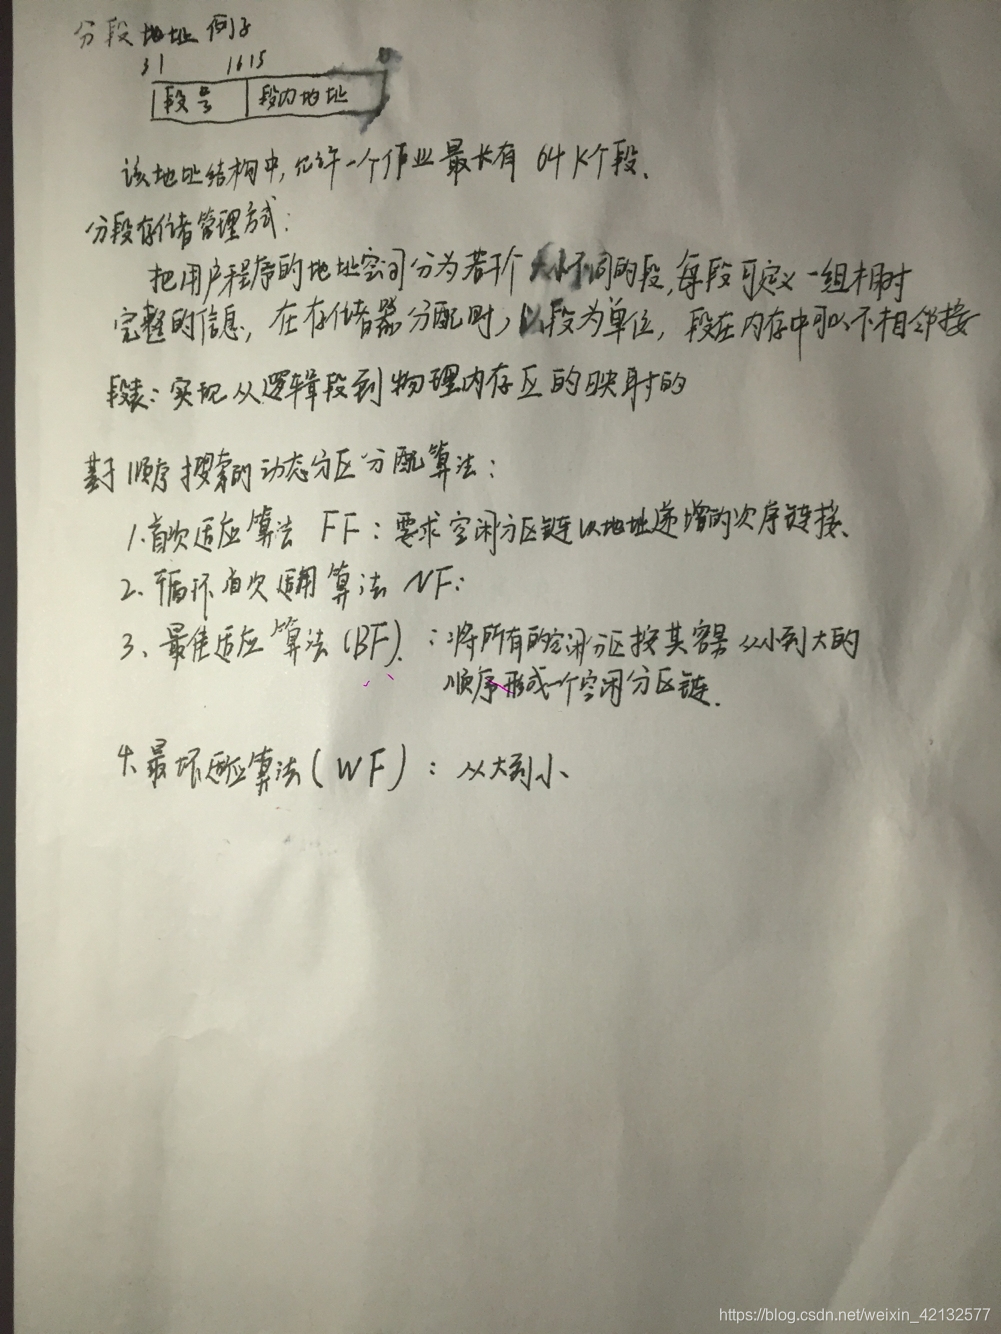 分段地址例子
31 16 15 0
段号 段内地址
该地址结构中,允许一个作业最长有 64K个段.
分段存储管理方式:
把用户程序的地址空间分为若干个大小不同的段,每段可定义一组相对
完整的信息,在存储器分配时,以段为单位,段在内存中可以不相邻接
段表:实现从逻辑段到物理内存区的映射的
基于顺序搜索的动态分区分配算法:
1.首次适应算法 FF:要求空闲分区链以地址递增的次序链接、
2、循环首次适用算法 NF:
3、最佳适应算法(BF).:将所有的空闲分区按其容量从小到大的
顺序形成一个空闲分区链.
4.最坏适应算法(WF):从大到小、
https://blog.csdn.net/weixin_42132577